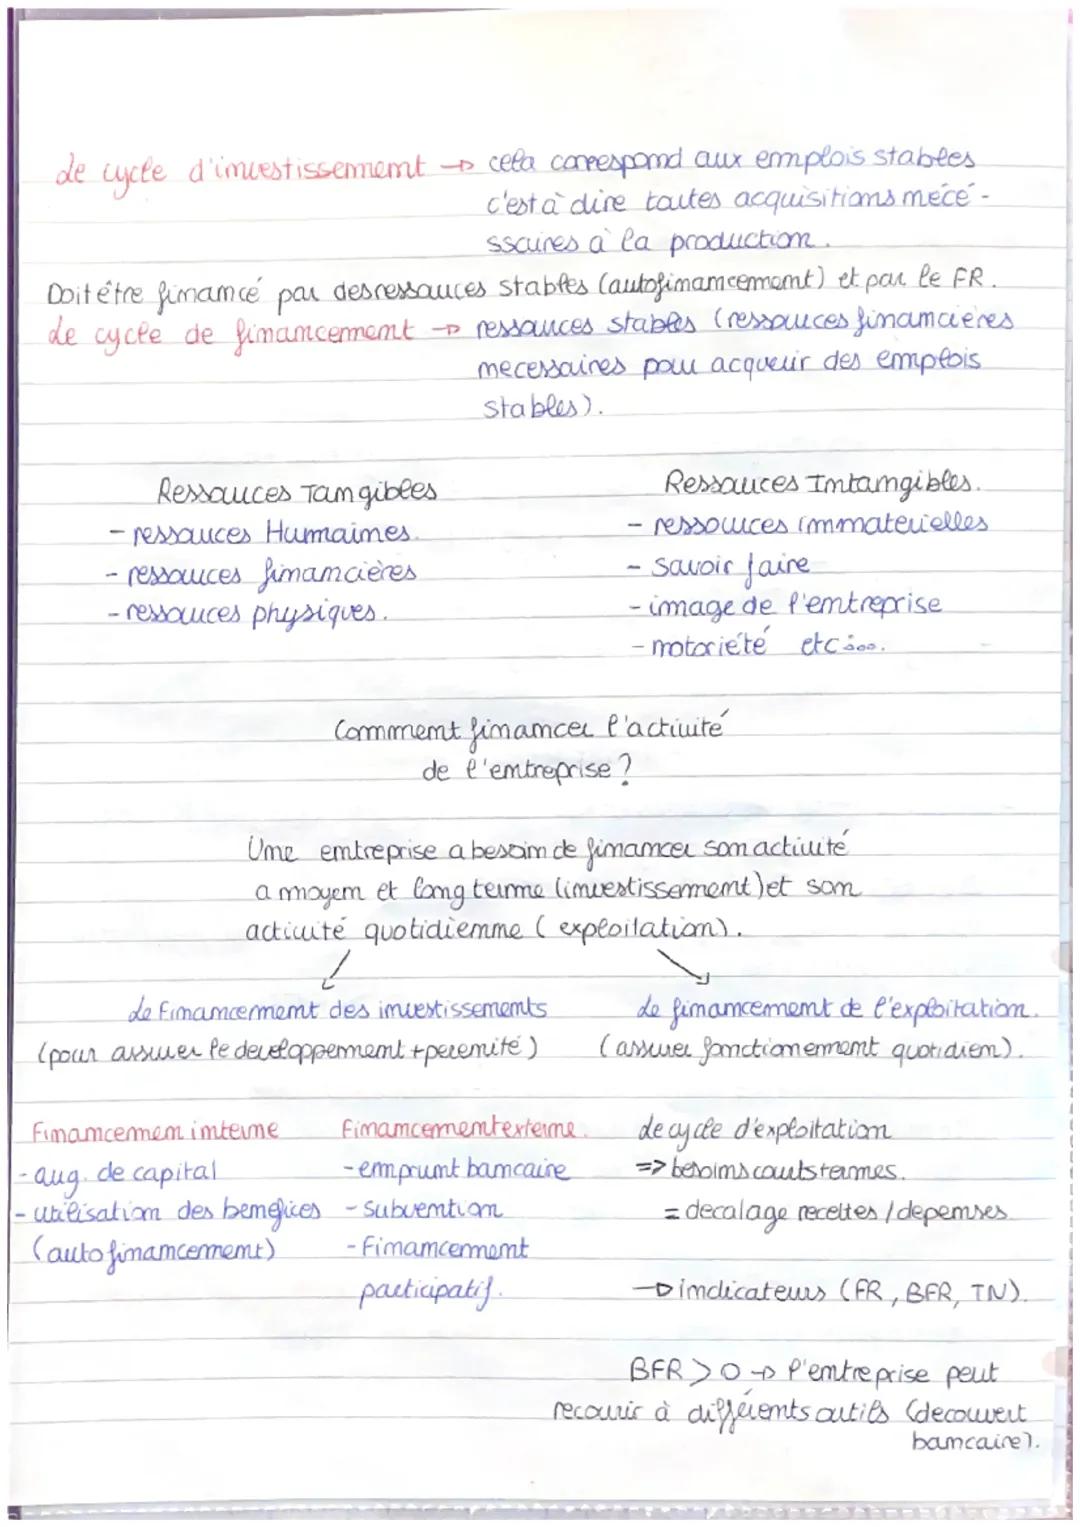 Le cycle d'investissement → cela correspond aux emplois stables
c'est à dire toutes acquisitions néce-
ssaires à la production.
Doit être financé par des ressources stables (autofinancement) et par le FR.
Le cycle de financement → ressources stables (ressources financières
necessaires pour acquerir des emplois
stables).
Ressources Tangibles
- ressources Humaines.
- ressources financières
- ressources physiques.
Ressources Intangibles.
- ressources immaterielles
- Savoir faire
- image de l'entreprise
- notoriété etc....
Comment financer l'activité
de l'entreprise ?
Une entreprise a besoin de financer son activité
a moyen et long terme (investissement) et son
activité quotidienne (exploitation).
Le Financement des investissements
(pour assurer le developpement + perennité)
Le financement de l'exploitation.
(assurer fonctionnement quotidien).
Financemen interne
- aug. de capital
- utilisation des benefices
(autofinancement)
Financement externe.
- emprunt bancaire
- Subvention
- Financement
participatif.
Le cycle d'exploitation
=> besoins courts termes.
= decalage recettes / depenses
→ indicateurs (FR, BFR, TN).
BFR > 0 → l'entreprise peut
recourir à différents outils (decouvert
bancaire).